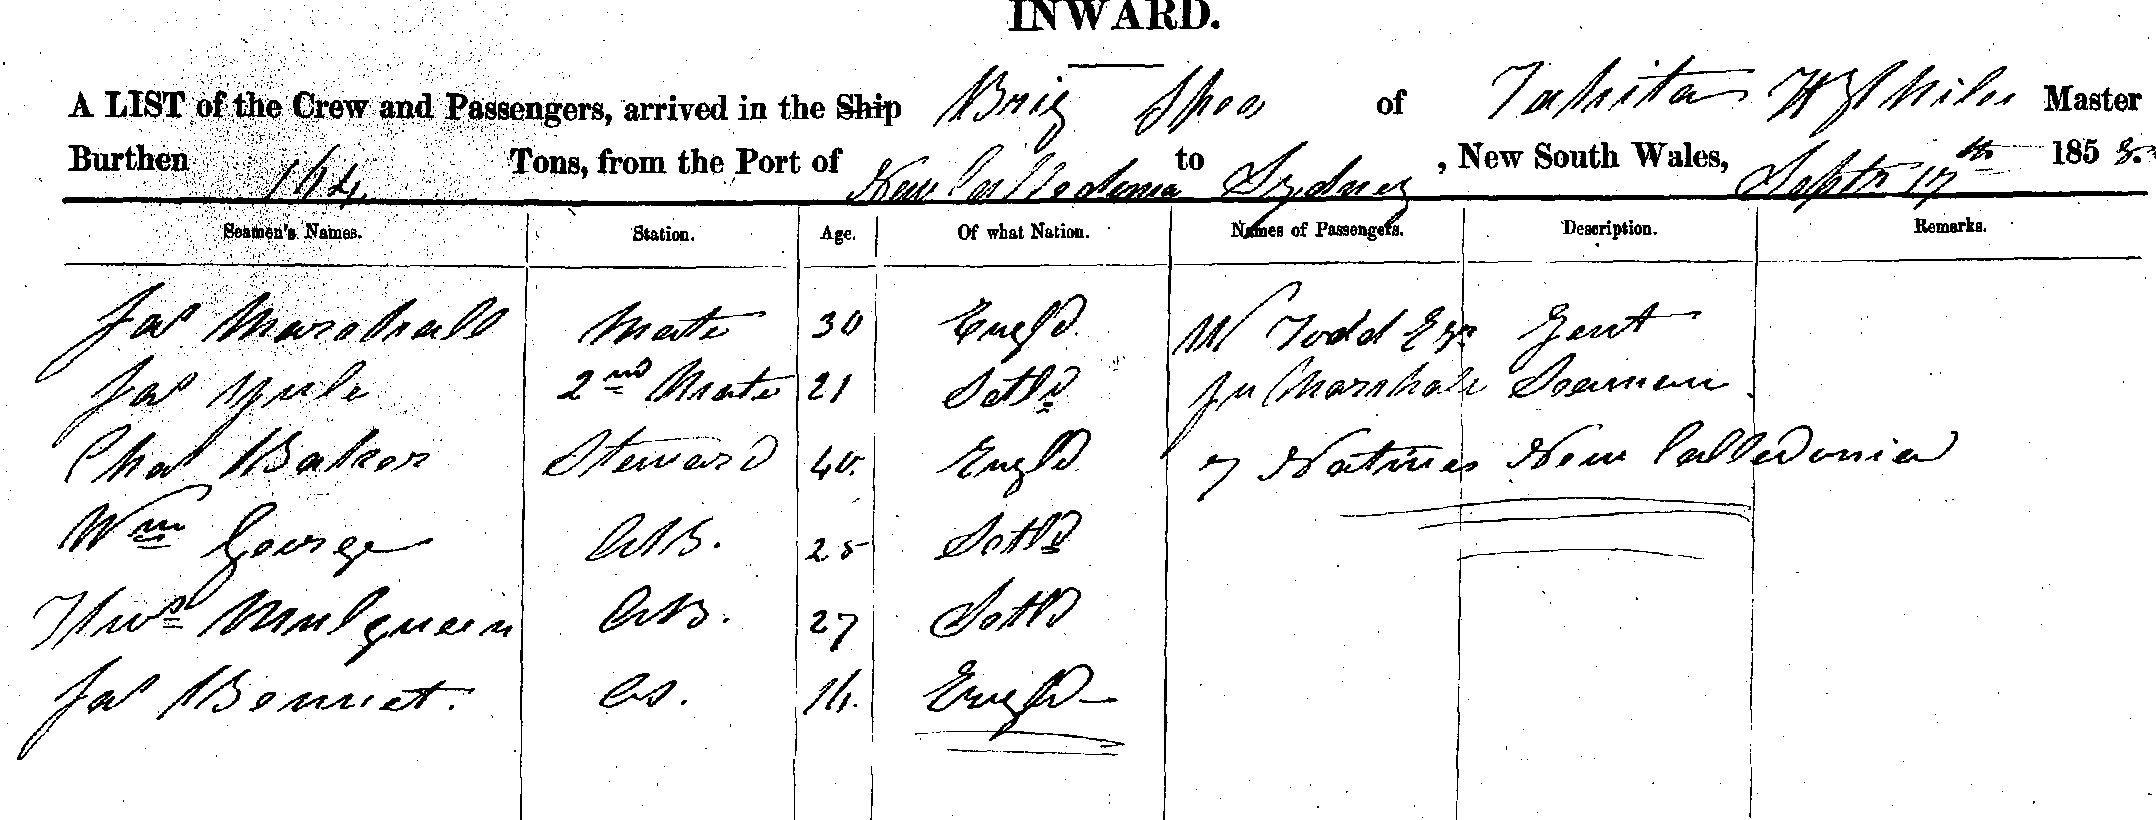 INWARD.
A LIST of the Crew and Passengers, arrived in the Ship Brig Spec of Tahita W Philer Master
Burthen 164 Tons, from the Port of New Calledonia to Sydney, New South Wales, Septr 17th 1858.
Seamen's Names. Station. Age. Of what Nation. Names of Passengers. Description. Remarks.
Jas Marshall Mate 30 Engld. W Todd Esqr Gent
Jas Yule 2nd Mate 21 Sctld Jn Marshall Seaman.
Chas Baker Steward 40. Engld 7 Natives New Calledonia
Wm George AB. 25 Sctld
Thos Mulqueen AB. 27 Sctld
Jas Bennet. OS. 16. Engld